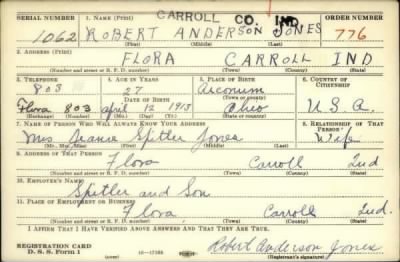 CARROLL CO. IND.
SERIAL NUMBER 1. NAME (Print) ORDER NUMBER
1062 ROBERT ANDERSON JONES 776
(First) (Middle) (Last)
2. ADDRESS (Print)
FLORA CARROLL IND
(Number and street or R. F. D. number) (Town) (County) (State)
3. TELEPHONE 4. AGE IN YEARS 5. PLACE OF BIRTH 6. COUNTRY OF CITIZENSHIP
803 27 Arconum
DATE OF BIRTH (Town or county)
Flora 803 April 12 1913 Ohio U.S.A.
(Exchange) (Number) (Mo.) (Day) (Yr.) (State or country)
7. NAME OF PERSON WHO WILL ALWAYS KNOW YOUR ADDRESS 8. RELATIONSHIP OF THAT PERSON
Mrs Jeanie Spitler Jones Wife
(Mr., Mrs., Miss) (First) (Middle) (Last)
9. ADDRESS OF THAT PERSON
Flora Carroll Ind
(Number and street or R. F. D. number) (Town) (County) (State)
10. EMPLOYER'S NAME
Spitler and Son
11. PLACE OF EMPLOYMENT OR BUSINESS
Flora Carroll Ind.
(Number and street or R. F. D. number) (Town) (County) (State)
I AFFIRM THAT I HAVE VERIFIED ABOVE ANSWERS AND THAT THEY ARE TRUE.
REGISTRATION CARD
D. S. S. Form 1 16-17105 Robert Anderson Jones
(Registrant's signature)